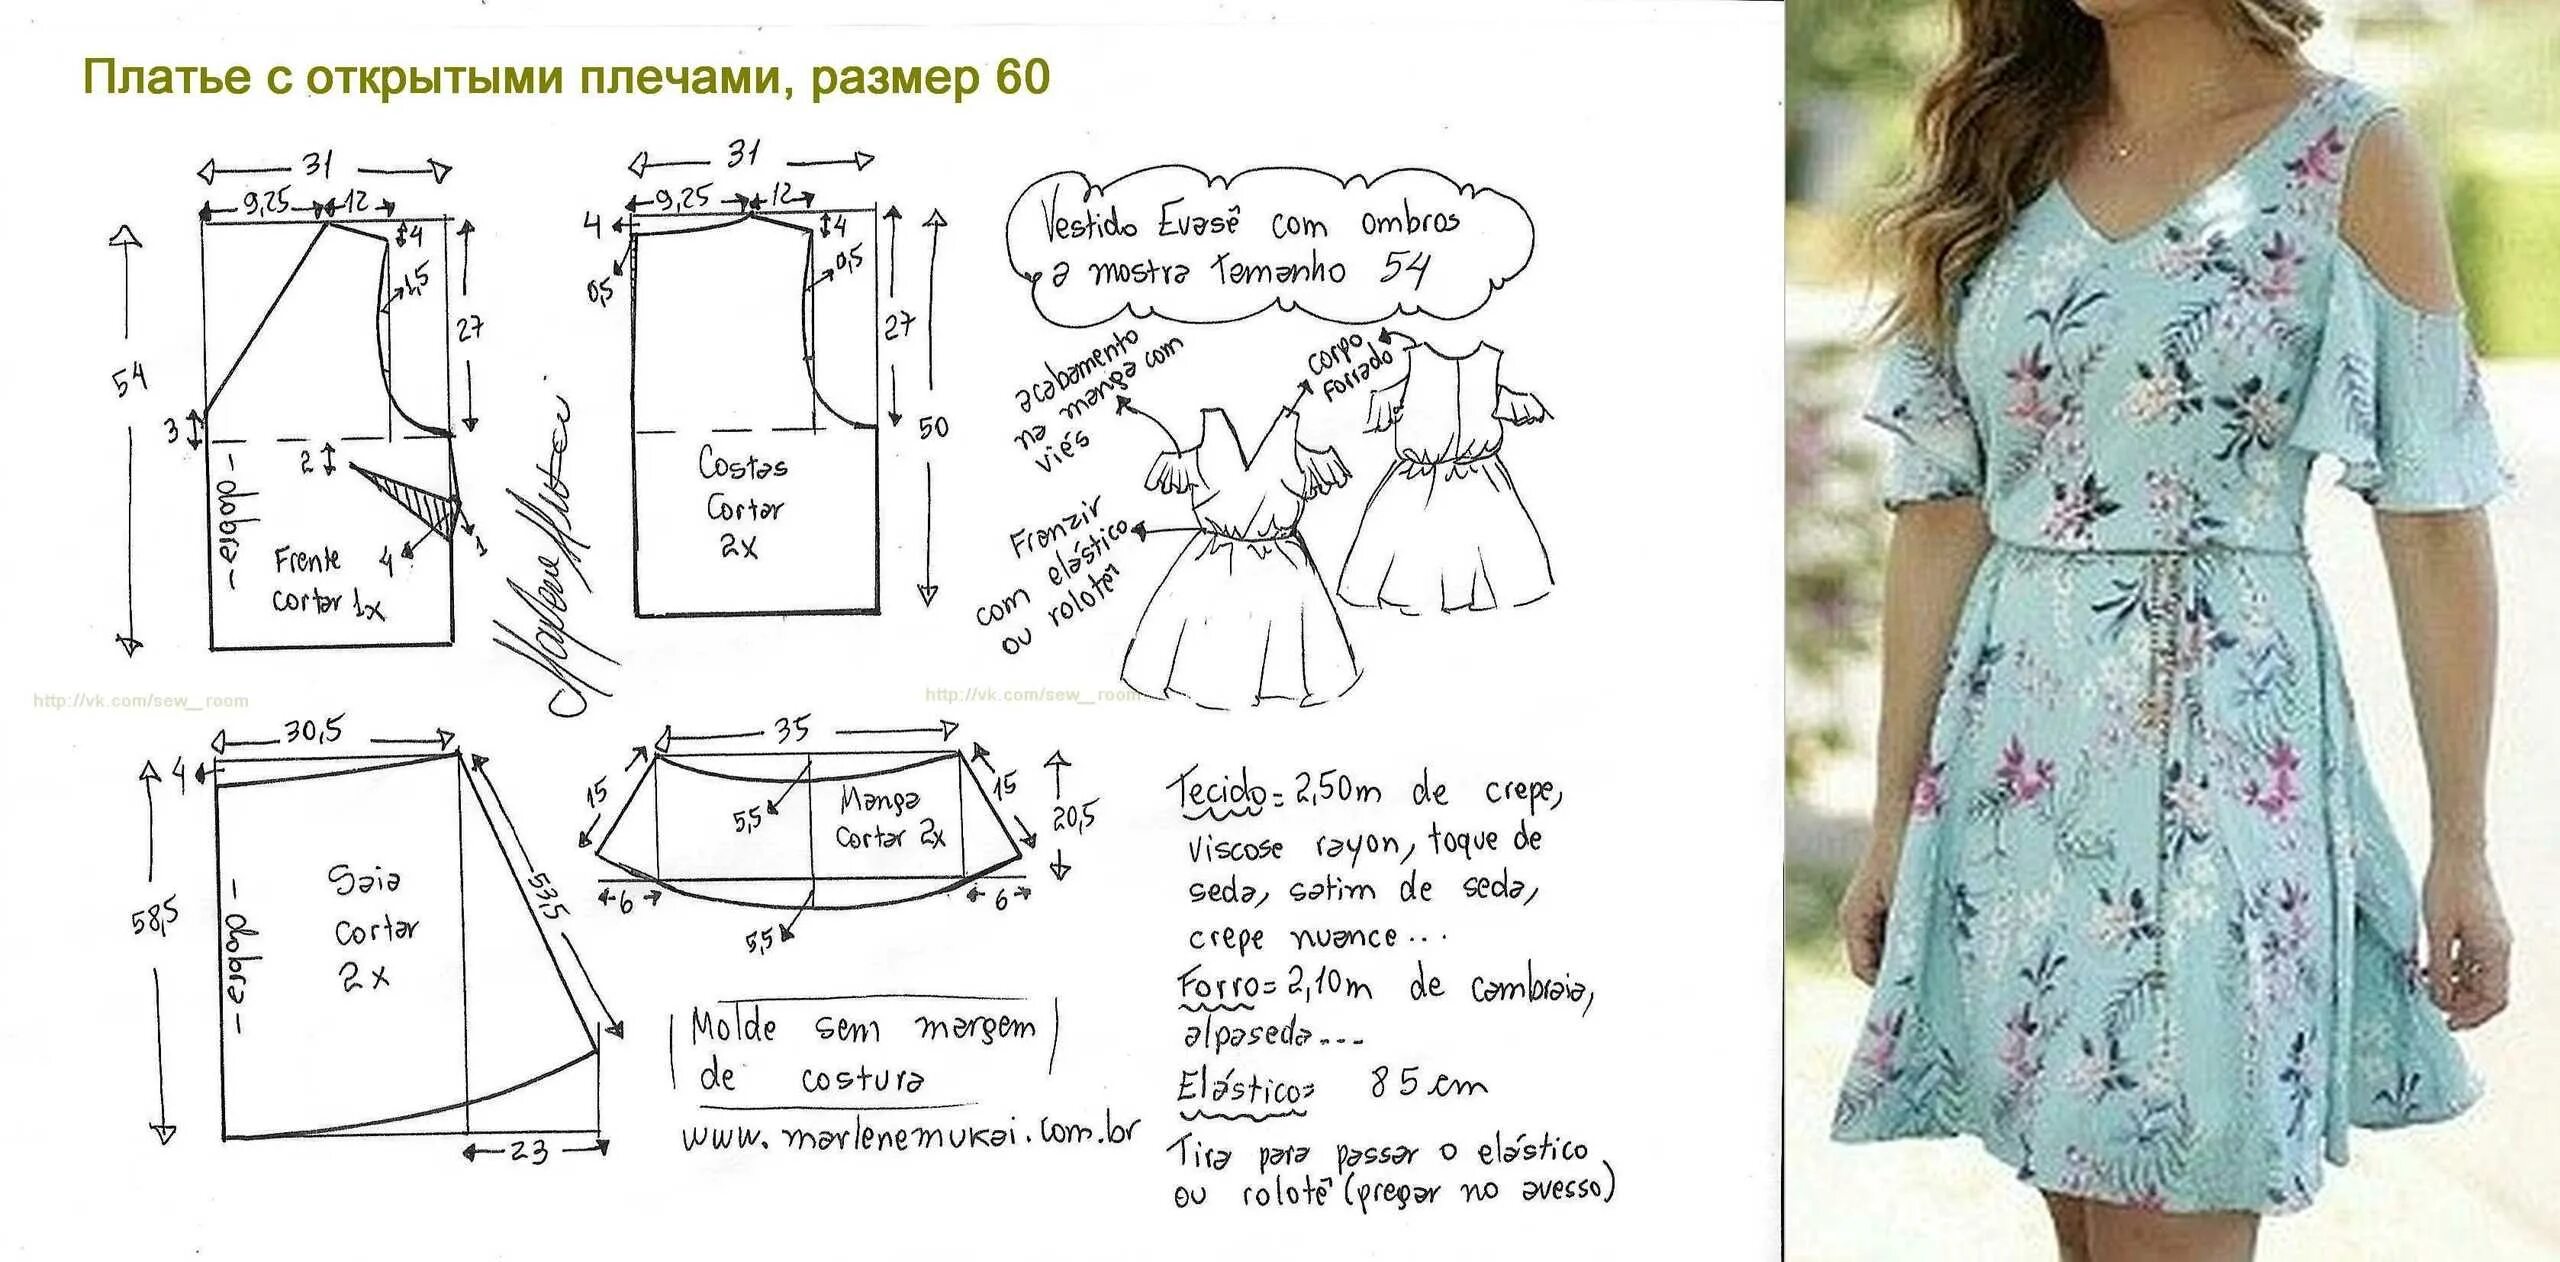 Платье с открытыми плечами, размер 60
31
9,25
12
4
1,5
27
54
3
2
- dobra -
Frente
cortar 1x
4
1
31
9,25
12
4
4
0,5
0,5
27
50
Costas
Cortar
2x
Vestido Evasê com ombros
a mostra Tamanho 54
acabamento
na manga com
viés
corpo
Forrado
Franzir
com elástico
ou rolotê
http://vk.com/sew__room
http://vk.com/sew__room
30,5
4
58,5
- dobra -
Saia
cortar
2x
53,5
23
35
15
15
5,5
Manga
cortar 2x
20,5
6
6
5,5
Molde sem margem
de costura
www.marlenemukai.com.br
Tecido= 2,50m de crepe,
viscose rayon, toque de
seda, satim de seda,
crepe nuance...
Forro= 2,10m de cambraia,
alpaseda...
Elástico= 85 cm
Tira para passar o elástico
ou rolotê (pregar no avesso)